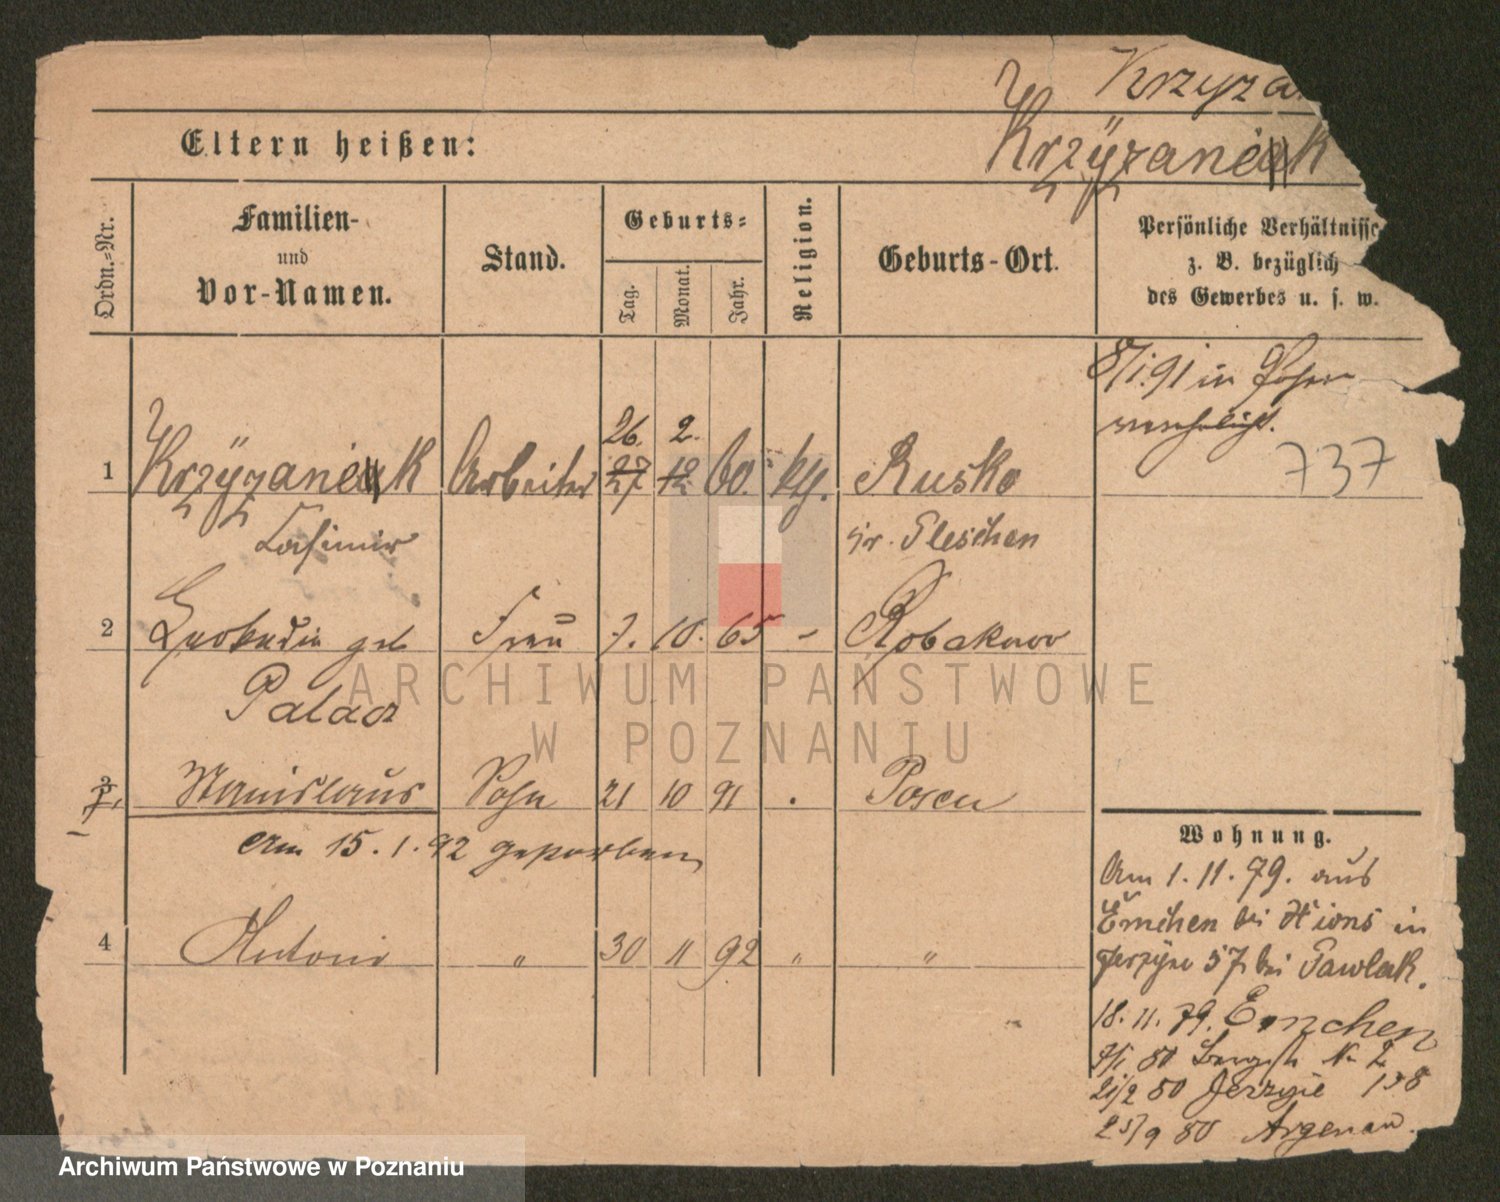 Krzyza
Eltern heißen:
Krzyzaniak
Ordn.-Nr.
Familien-
und
Vor-Namen.
Stand.
Geburts-
Tag.
Monat.
Jahr.
Religion.
Geburts-Ort.
Persönliche Verhältnisse
z. B. bezüglich
des Gewerbes u. s. w.
8/1.91 in Posen
verehelicht.
26. 2.
1 Krzyzaniak Arbeiter 27 12 60. kth. Rusko
737
Casimir
Kr. Pleschen
2 Leokadia geb Frau 7. 10. 65 - Robakowo
Palacz
3 Stanislaus Sohn 21 10 91 . Posen
am 15. 1. 92 gestorben
4 Antoni " 30 11 92 " "
Wohnung.
Am 1. 11. 79. aus
Emchen bei Xions in
Jerzyce 57 bei Pawlak.
18. 11. 79. Emchen
7/1 80 Bergstr No 2
21/2 80 Jerzyce 138
25/9 80 Argenau.
ARCHIWUM PAŃSTWOWE
W POZNANIU
Archiwum Państwowe w Poznaniu